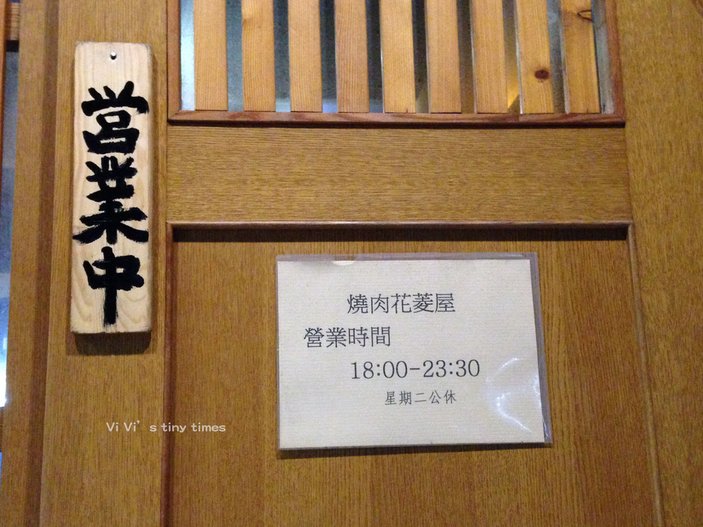 営業中
燒肉花菱屋
營業時間
18:00-23:30
星期二公休
Vi Vi’s tiny times